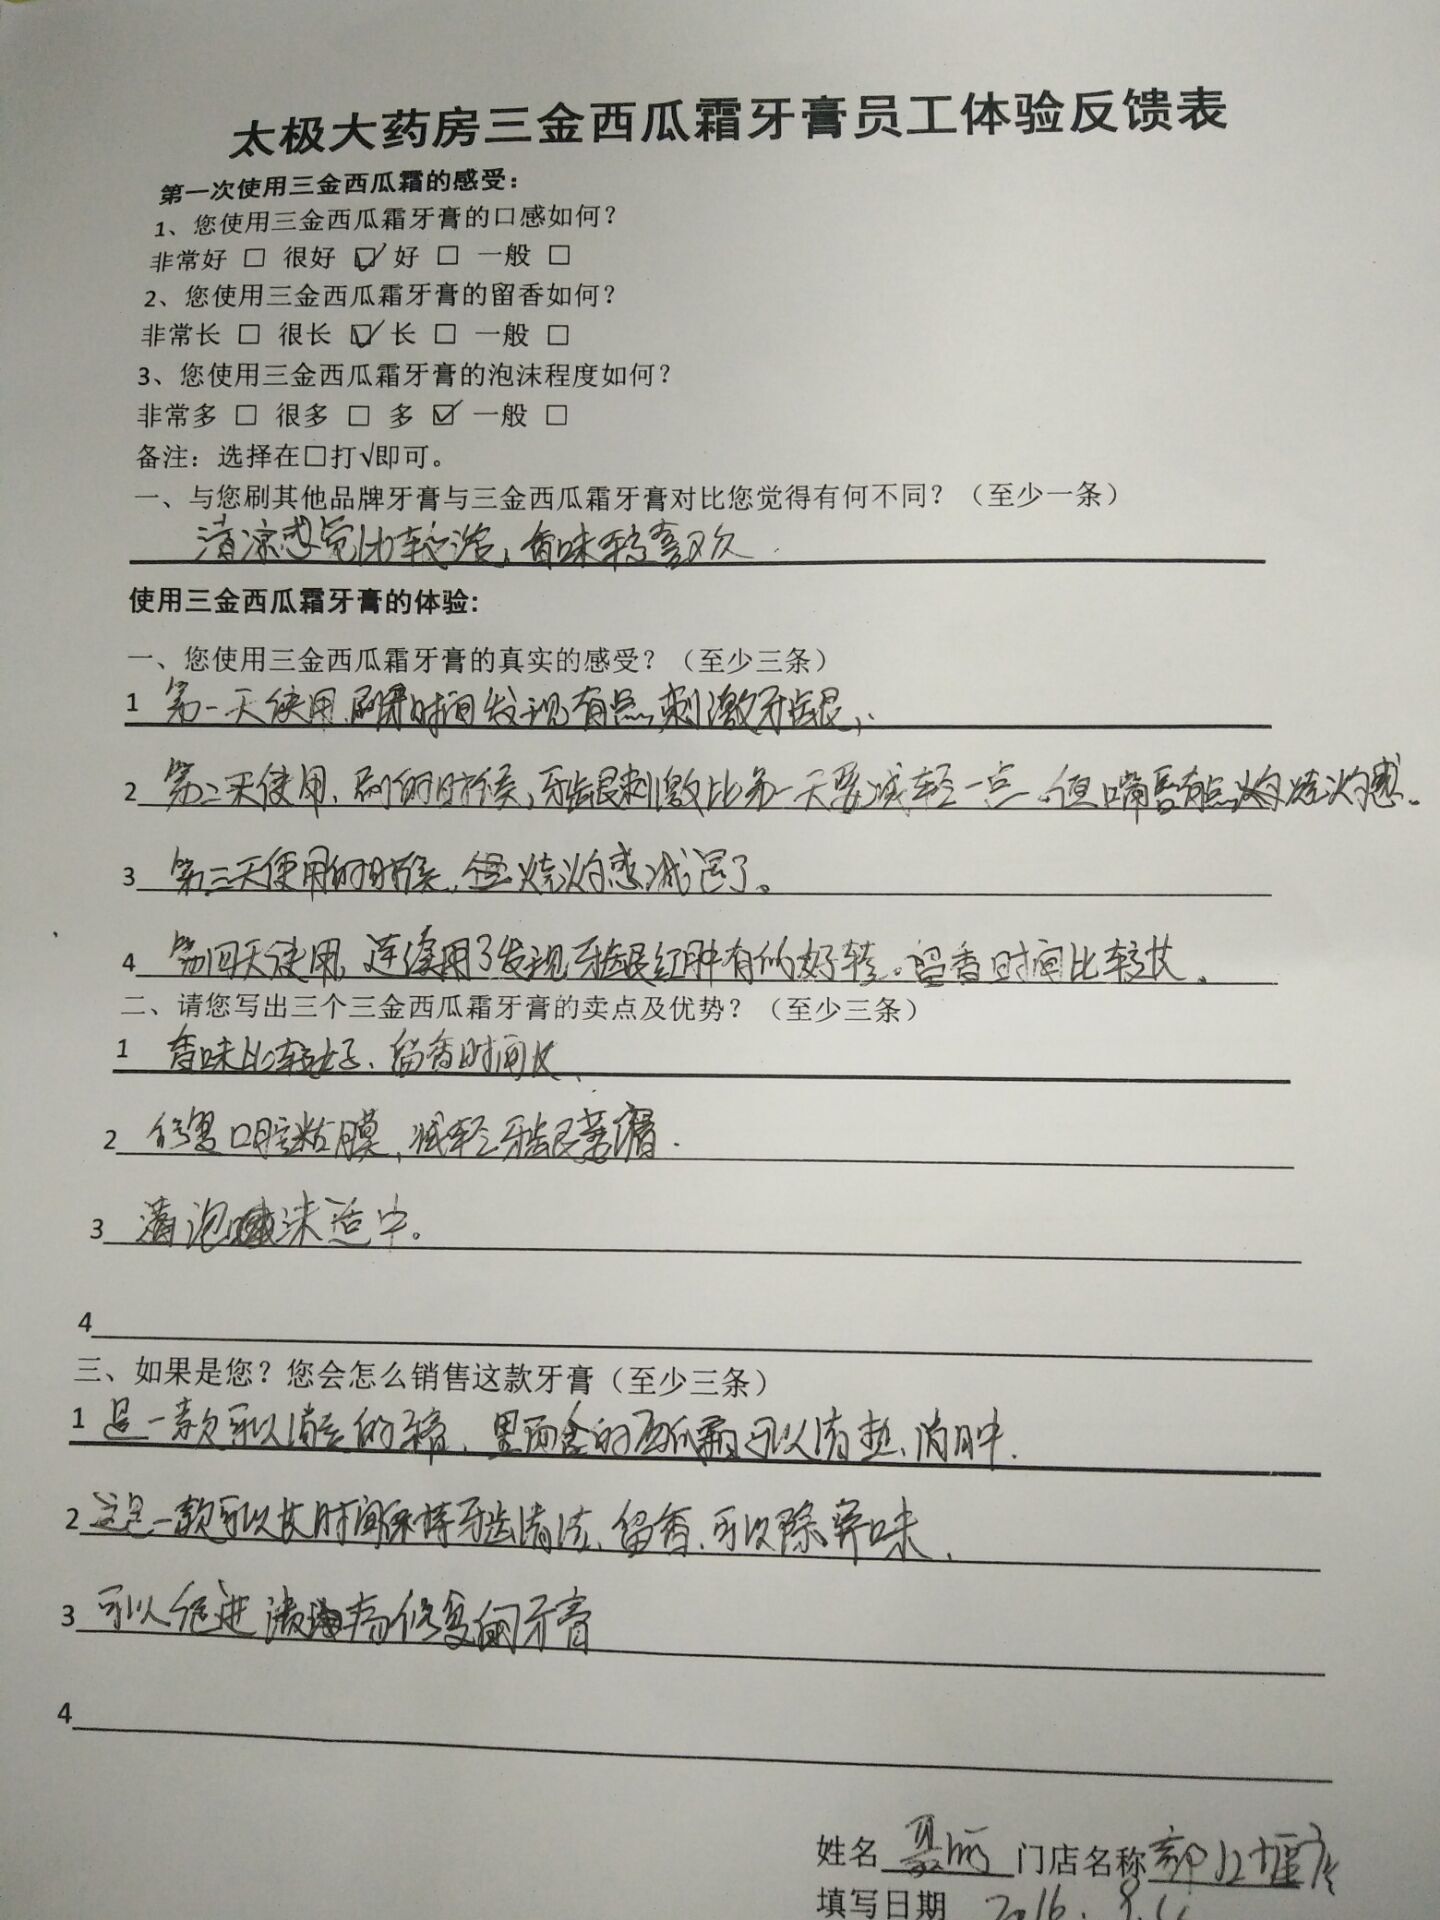 太极大药房三金西瓜霜牙膏员工体验反馈表
第一次使用三金西瓜霜的感受：
1、您使用三金西瓜霜牙膏的口感如何？
非常好 □ 很好 ☑ 好 □ 一般 □
2、您使用三金西瓜霜牙膏的留香如何？
非常长 □ 很长 ☑ 长 □ 一般 □
3、您使用三金西瓜霜牙膏的泡沫程度如何？
非常多 □ 很多 □ 多 ☑ 一般 □
备注：选择在□打√即可。
一、与您刷其他品牌牙膏与三金西瓜霜牙膏对比您觉得有何不同？（至少一条）
清凉感觉比较浓，香味较喜欢.
使用三金西瓜霜牙膏的体验:
一、您使用三金西瓜霜牙膏的真实的感受？（至少三条）
1 第一天使用、刷牙时间发现有点刺激牙龈，
2 第二天使用、刷的时候，牙龈刺激比第一天要减轻一点.但嘴唇有点烧灼感。
3 第三天使用的时候，烧灼感减退了。
4 第四天使用，连续用了发现牙龈红肿有的好转。留香时间比较长。
二、请您写出三个三金西瓜霜牙膏的卖点及优势？（至少三条）
1 香味比较好、留香时间长、
2 修复口腔粘膜，减轻牙龈
3 泡沫适中。
4
三、如果是您？您会怎么销售这款牙膏（至少三条）
1 是一款可以消炎的牙膏，里面含的西瓜霜可以清热、消肿.
2 这是一款可以长时间保持牙齿清洁、留香、可以除异味、
3 可以促进溃疡修复的牙膏
4
姓名 聂丽 门店名称 都江堰店
填写日期 2016.